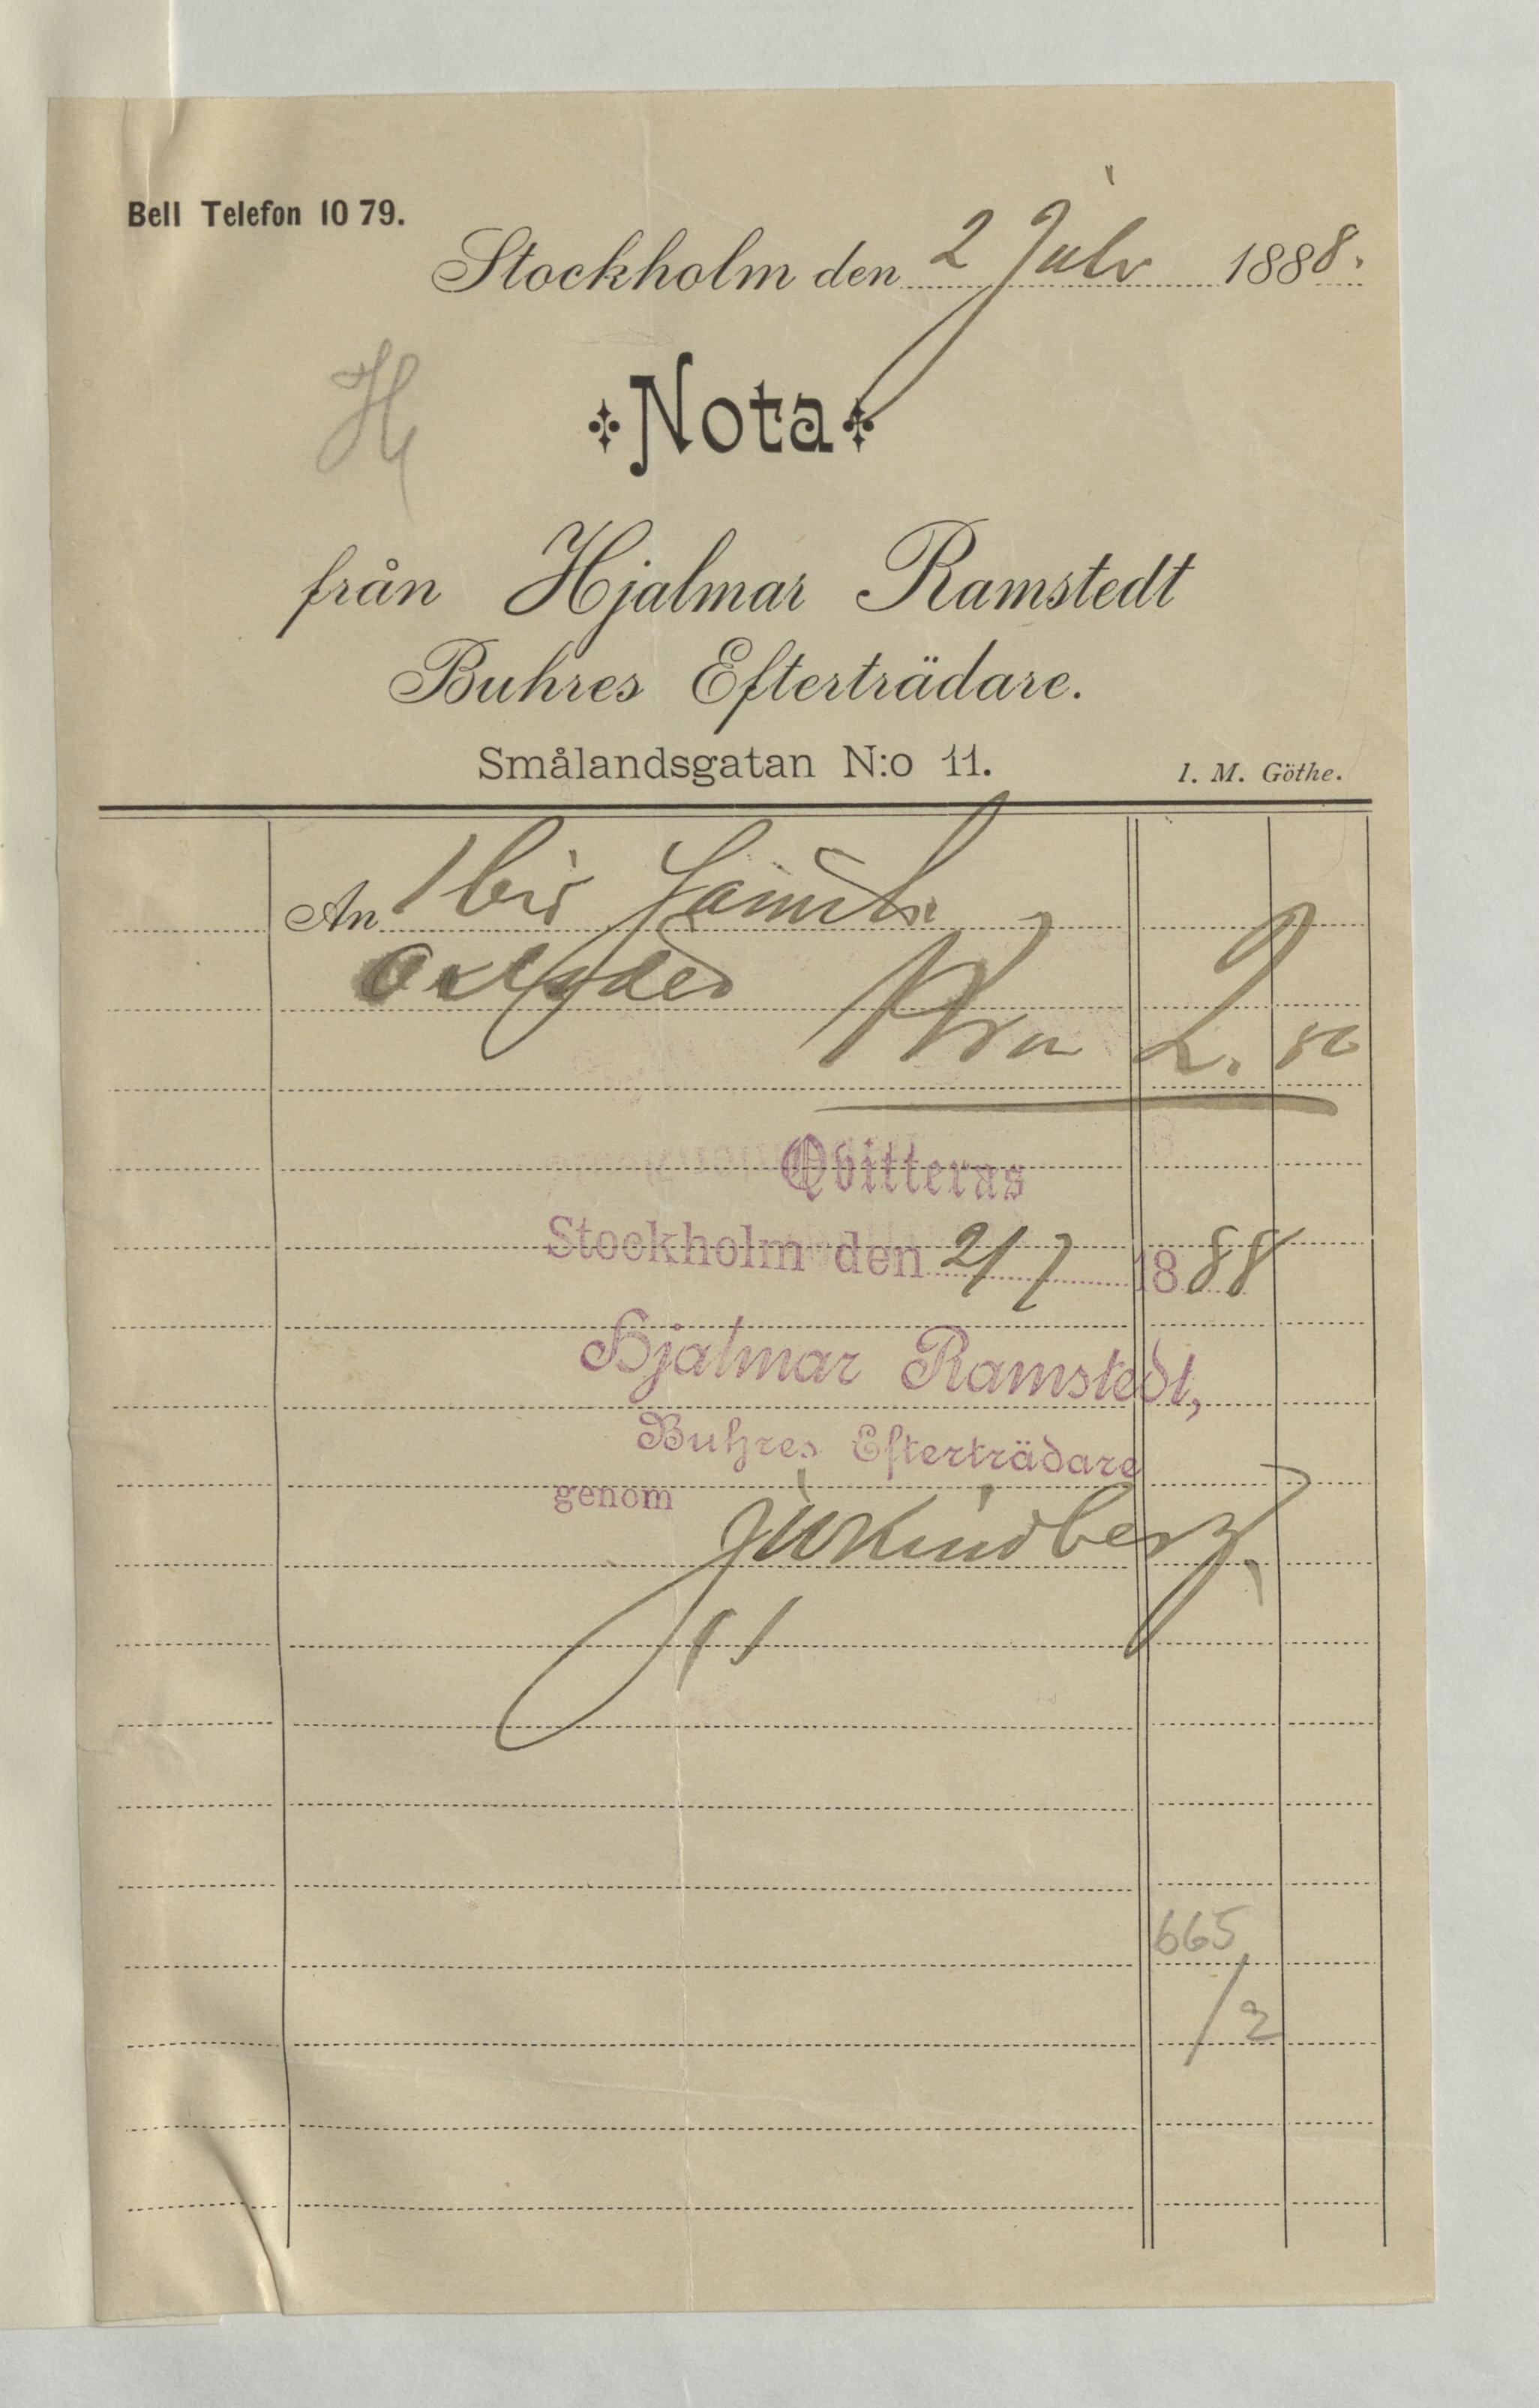 Bell Telefon 10 79.
Stockholm den 2 July 1888.
H
Nota
från Hjalmar Ramstedt
Buhres Efterträdare.
Smålandsgatan N:o 11.
I. M. Göthe.
An 1
Kr 2. 50
Qvitteras
Stockholm den 2/7 1888
Hjalmar Ramstedt,
Buhres Efterträdare
genom
665
/2